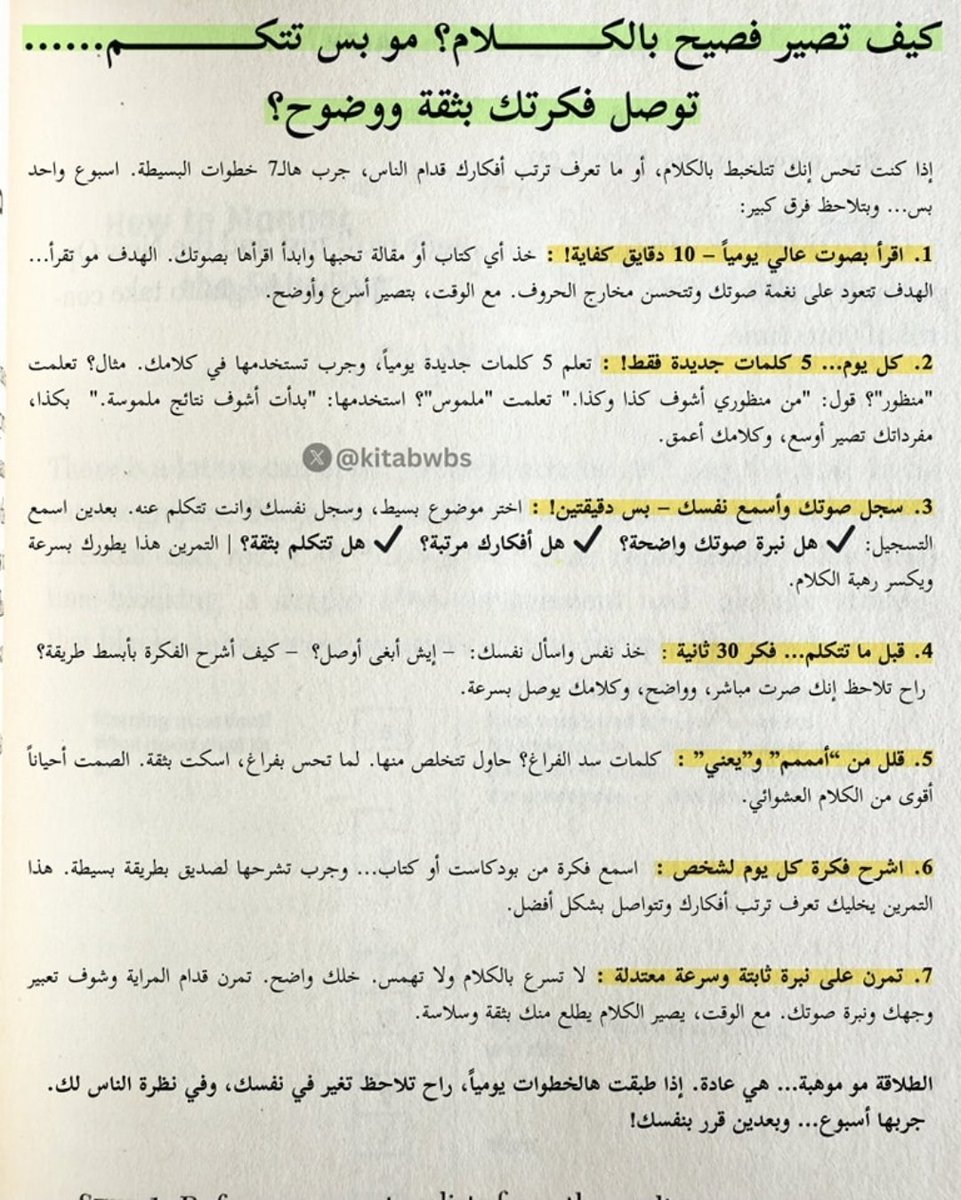 كيف تصير فصيح بالكـــــلام؟ مو بس تتكـــــــم......
توصل فكرتك بثقة ووضوح؟
إذا كنت تحس إنك تتلخبط بالكلام، أو ما تعرف ترتب أفكارك قدام الناس، جرب هالـ7 خطوات البسيطة. اسبوع واحد
بس... وبتلاحظ فرق كبير:
1. اقرأ بصوت عالي يومياً – 10 دقايق كفاية! : خذ أي كتاب أو مقالة تحبها وابدأ اقرأها بصوتك. الهدف مو تقرأ...
الهدف تتعود على نغمة صوتك وتتحسن مخارج الحروف. مع الوقت، بتصير أسرع وأوضح.
2. كل يوم... 5 كلمات جديدة فقط! : تعلم 5 كلمات جديدة يومياً، وجرب تستخدمها في كلامك. مثال؟ تعلمت
"منظور"؟ قول: "من منظوري أشوف كذا وكذا." تعلمت "ملموس"؟ استخدمها: "بدأت أشوف نتائج ملموسة." بكذا،
مفرداتك تصير أوسع، وكلامك أعمق.
@kitabwbs
3. سجل صوتك وأسمع نفسك – بس دقيقتين! : اختر موضوع بسيط، وسجل نفسك وانت تتكلم عنه. بعدين اسمع
التسجيل: ✔ هل نبرة صوتك واضحة؟ ✔ هل أفكارك مرتبة؟ ✔ هل تتكلم بثقة؟ | التمرين هذا يطورك بسرعة
ويكسر رهبة الكلام.
4. قبل ما تتكلم... فكر 30 ثانية : خذ نفس واسأل نفسك: – إيش أبغى أوصل؟ – كيف أشرح الفكرة بأبسط طريقة؟
راح تلاحظ إنك صرت مباشر، وواضح، وكلامك يوصل بسرعة.
5. قلل من “أمممم” و”يعني” : كلمات سد الفراغ؟ حاول تتخلص منها. لما تحس بفراغ، اسكت بثقة. الصمت أحياناً
أقوى من الكلام العشوائي.
6. اشرح فكرة كل يوم لشخص : اسمع فكرة من بودكاست أو كتاب... وجرب تشرحها لصديق بطريقة بسيطة. هذا
التمرين يخليك تعرف ترتب أفكارك وتتواصل بشكل أفضل.
7. تمرن على نبرة ثابتة وسرعة معتدلة : لا تسرع بالكلام ولا تهمس. خلك واضح. تمرن قدام المراية وشوف تعبير
وجهك ونبرة صوتك. مع الوقت، يصير الكلام يطلع منك بثقة وسلاسة.
الطلاقة مو موهبة... هي عادة. إذا طبقت هالخطوات يومياً، راح تلاحظ تغير في نفسك، وفي نظرة الناس لك.
جربها أسبوع... وبعدين قرر بنفسك!